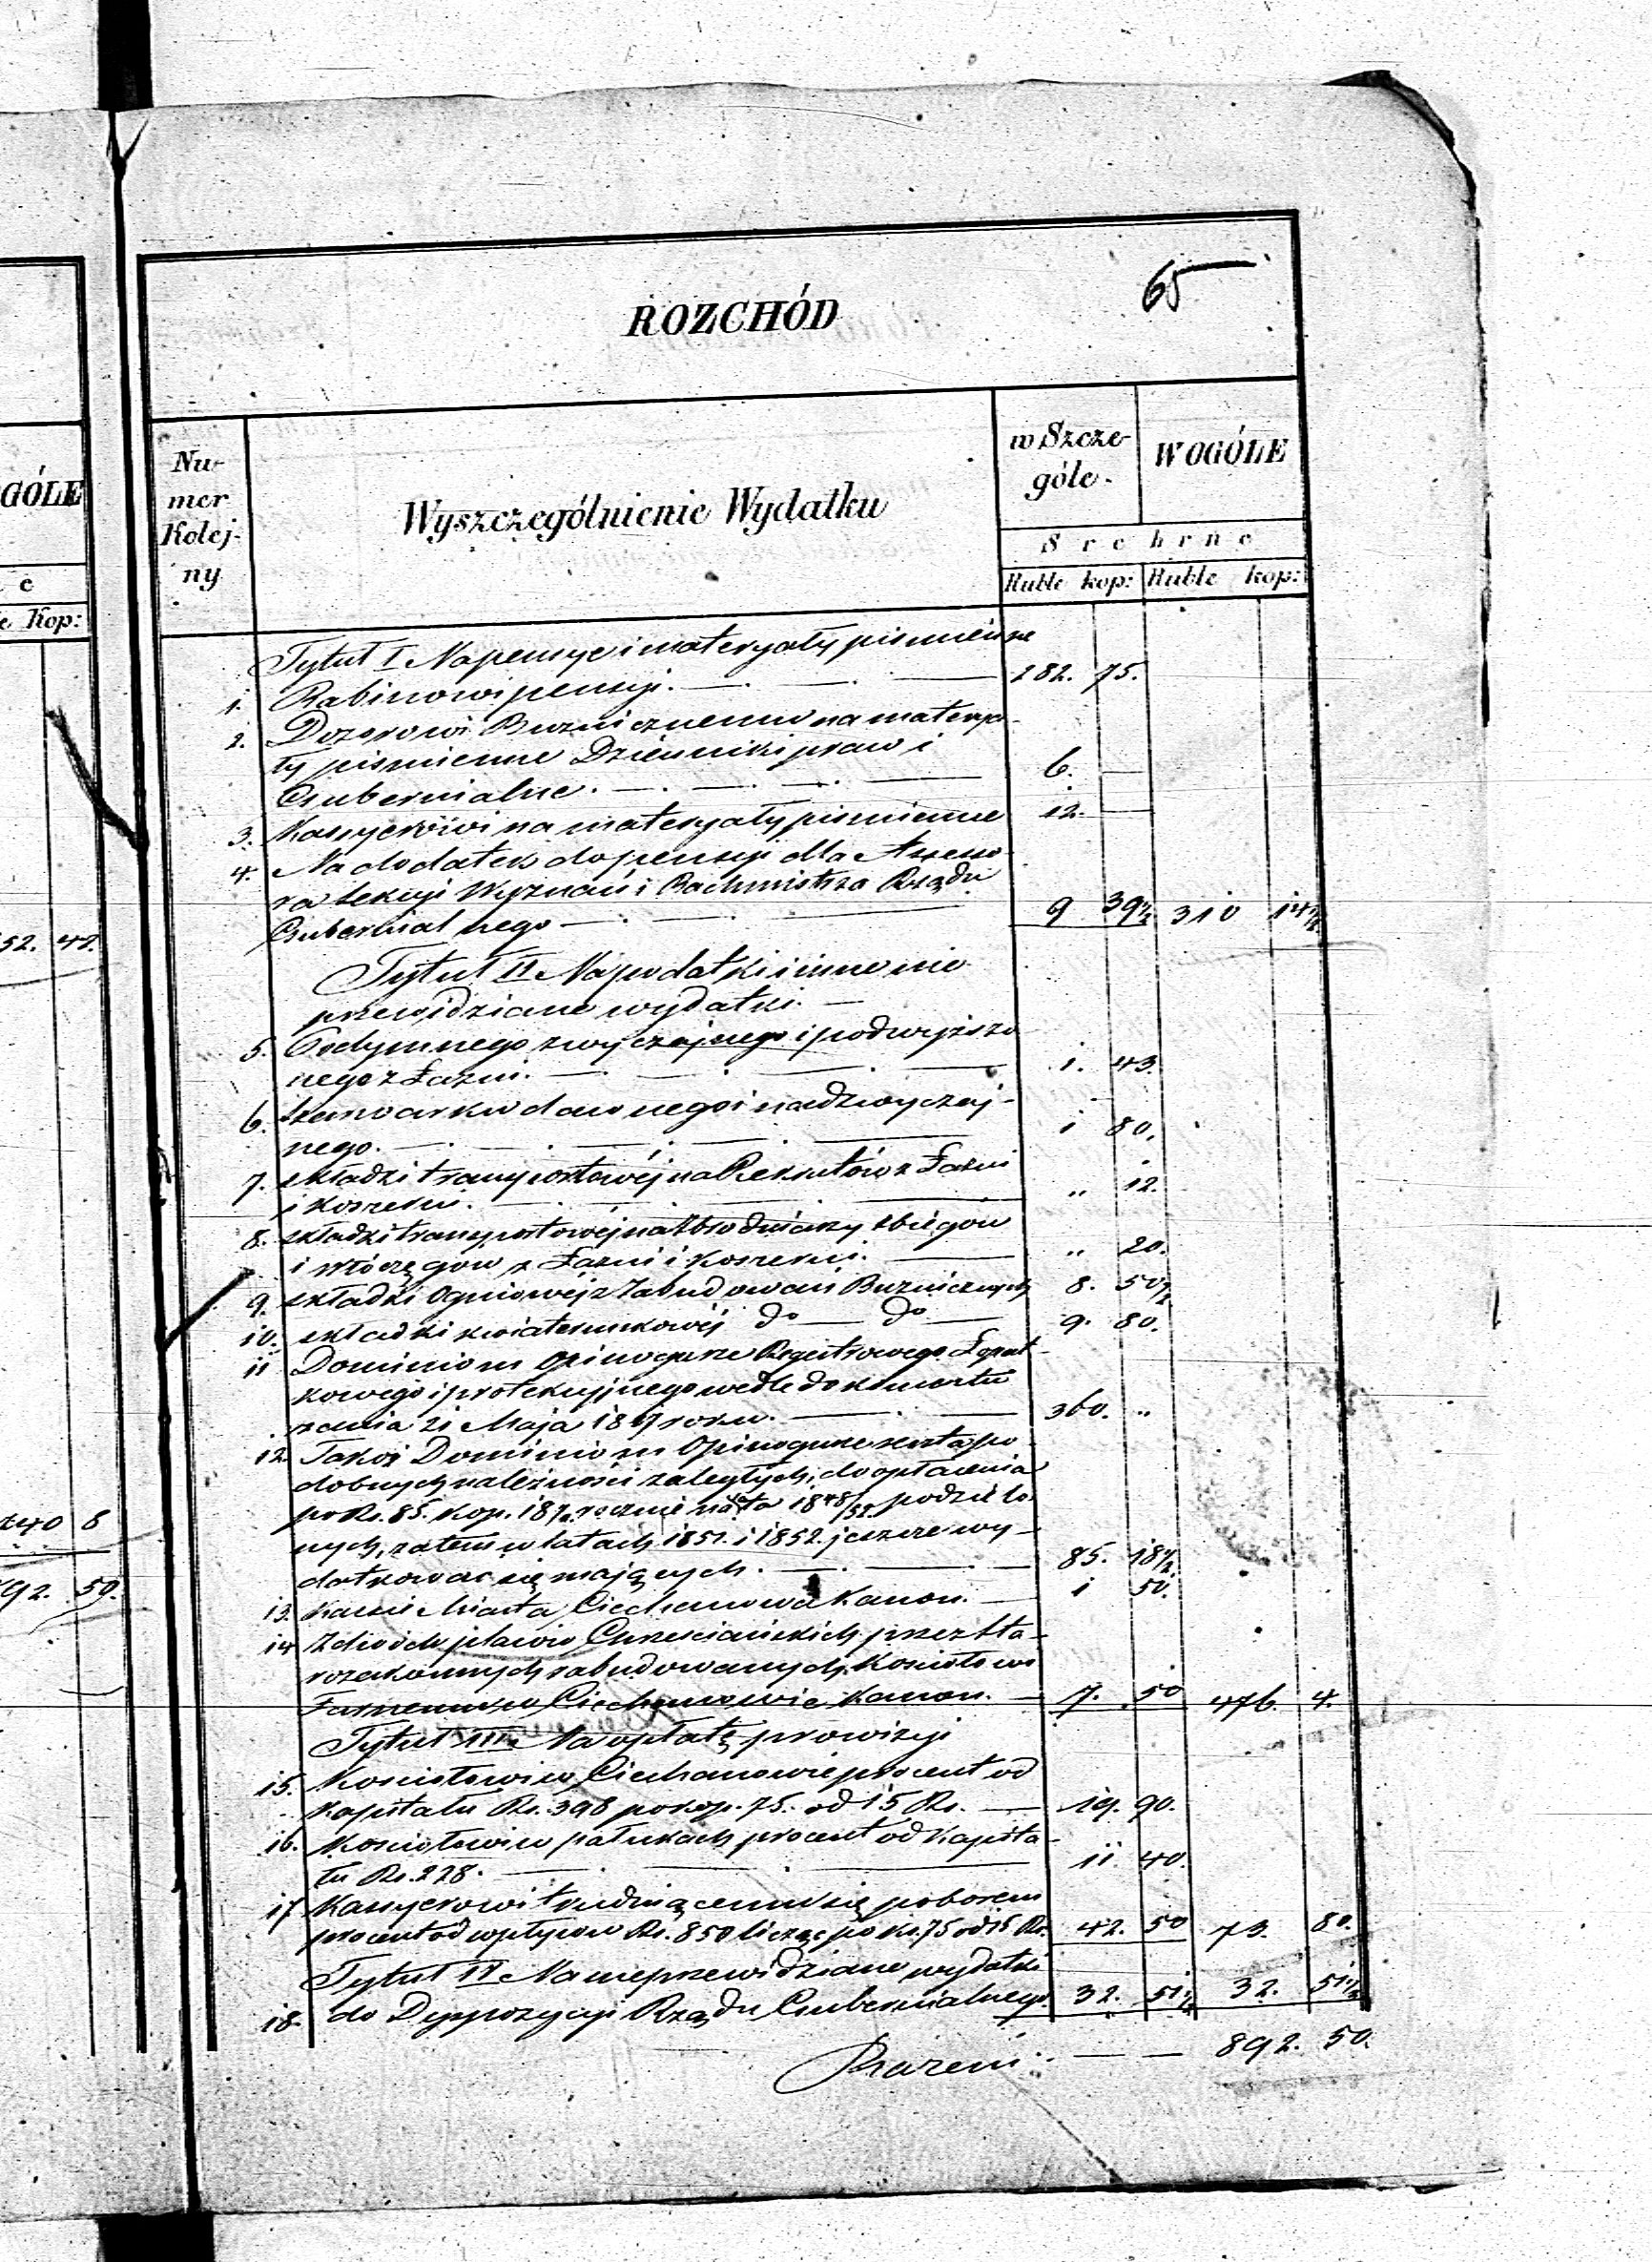 GÓLE
c
e Kop:
52. 42.
240 8
92. 50.
65
ROZCHÓD
Nu-
mer
Kolej-
ny
Wyszczególnienie Wydatku
w Szcze-
góle.
W OGÓLE
Srebrne
Ruble kop: Ruble kop:
Tytuł I Na pensye i materyały piśmienne
1. Rabinowi pensyi. — 282. 75.
2. Dozorowi Bużnicznemu na materya-
ły piśmienne Dzienniki praw i
Gubernialne. — 6. —
3. Kassyerowi na materyały piśmienne 12. —
4. Na dodatek do pensyi dla Assesso-
ra Sekcyi Wyznań i Rachmistrza Rządu
Gubernialnego — 9 39½ 310 14½
Tytuł II Na podatki i inne nie
przewidziane wydatki. —
5. Podymnego zwyczajnego i podwyższo-
nego z Łaźni. — 1. 43.
6. Szarwarku dawnego i nadzwyczaj-
nego. — 1 80.
7. składki transportowéj na Rekrutów z Łaźni
i koszerni. — " 12.
8. składki transportowéj na Zbrodniarzy zbiegow
i włóczęgow z Łaźni i koszerni. — " 20.
9. składki Ogniowéj z Zabudowań Bużnicznych 8. 50½
10. składki kwaterunkowéj do — do — 9. 80.
11 Dominiom Opinogurze
kowego i protekcyjnego wedle dokumentu
z dnia 21 Maja 18 roku. — 360. "
12. Takoż Dominiom Opinogurze resztę po-
dobnych należności zaległych, do opłacenia
po Rs. 85. kop. 18½ rocznie na lata 1848/52. podzielo-
nych, zatem w latach 1851. i 1852. jeszcze wy-
datkować się mających. — 85. 18½
13. Kassie Miasta Ciechanowa Kanon. — 1 50.
14 Z dwóch placów Chrześciańskich przez Sta-
rozakonnych zabudowanych, Kościołowi
Farnemu w Ciechanowie Kanon. — 7. 50 476. 4.
Tytuł III. Na opłatę prowizyi
15. Kościołowi w Ciechanowie procent od
Kapitału Rs. 398 po kop. 75. od 15 Rs. — 19. 90.
16. Kościołowi w Pałukach procent od Kapita-
łu Rs. 228. — 11. 40.
17 Kassyerowi trudniącemu się poborem
procent od wpływow Rs. 850 licząc po ko. 75 od 15 Rs. 42. 50 73. 80.
Tytuł IV Na nieprzewidziane wydatki
18. do Dyspozycyi Rządu Gubernialnego. 32. 51½ 32. 51½
Razem: — — 892. 50.